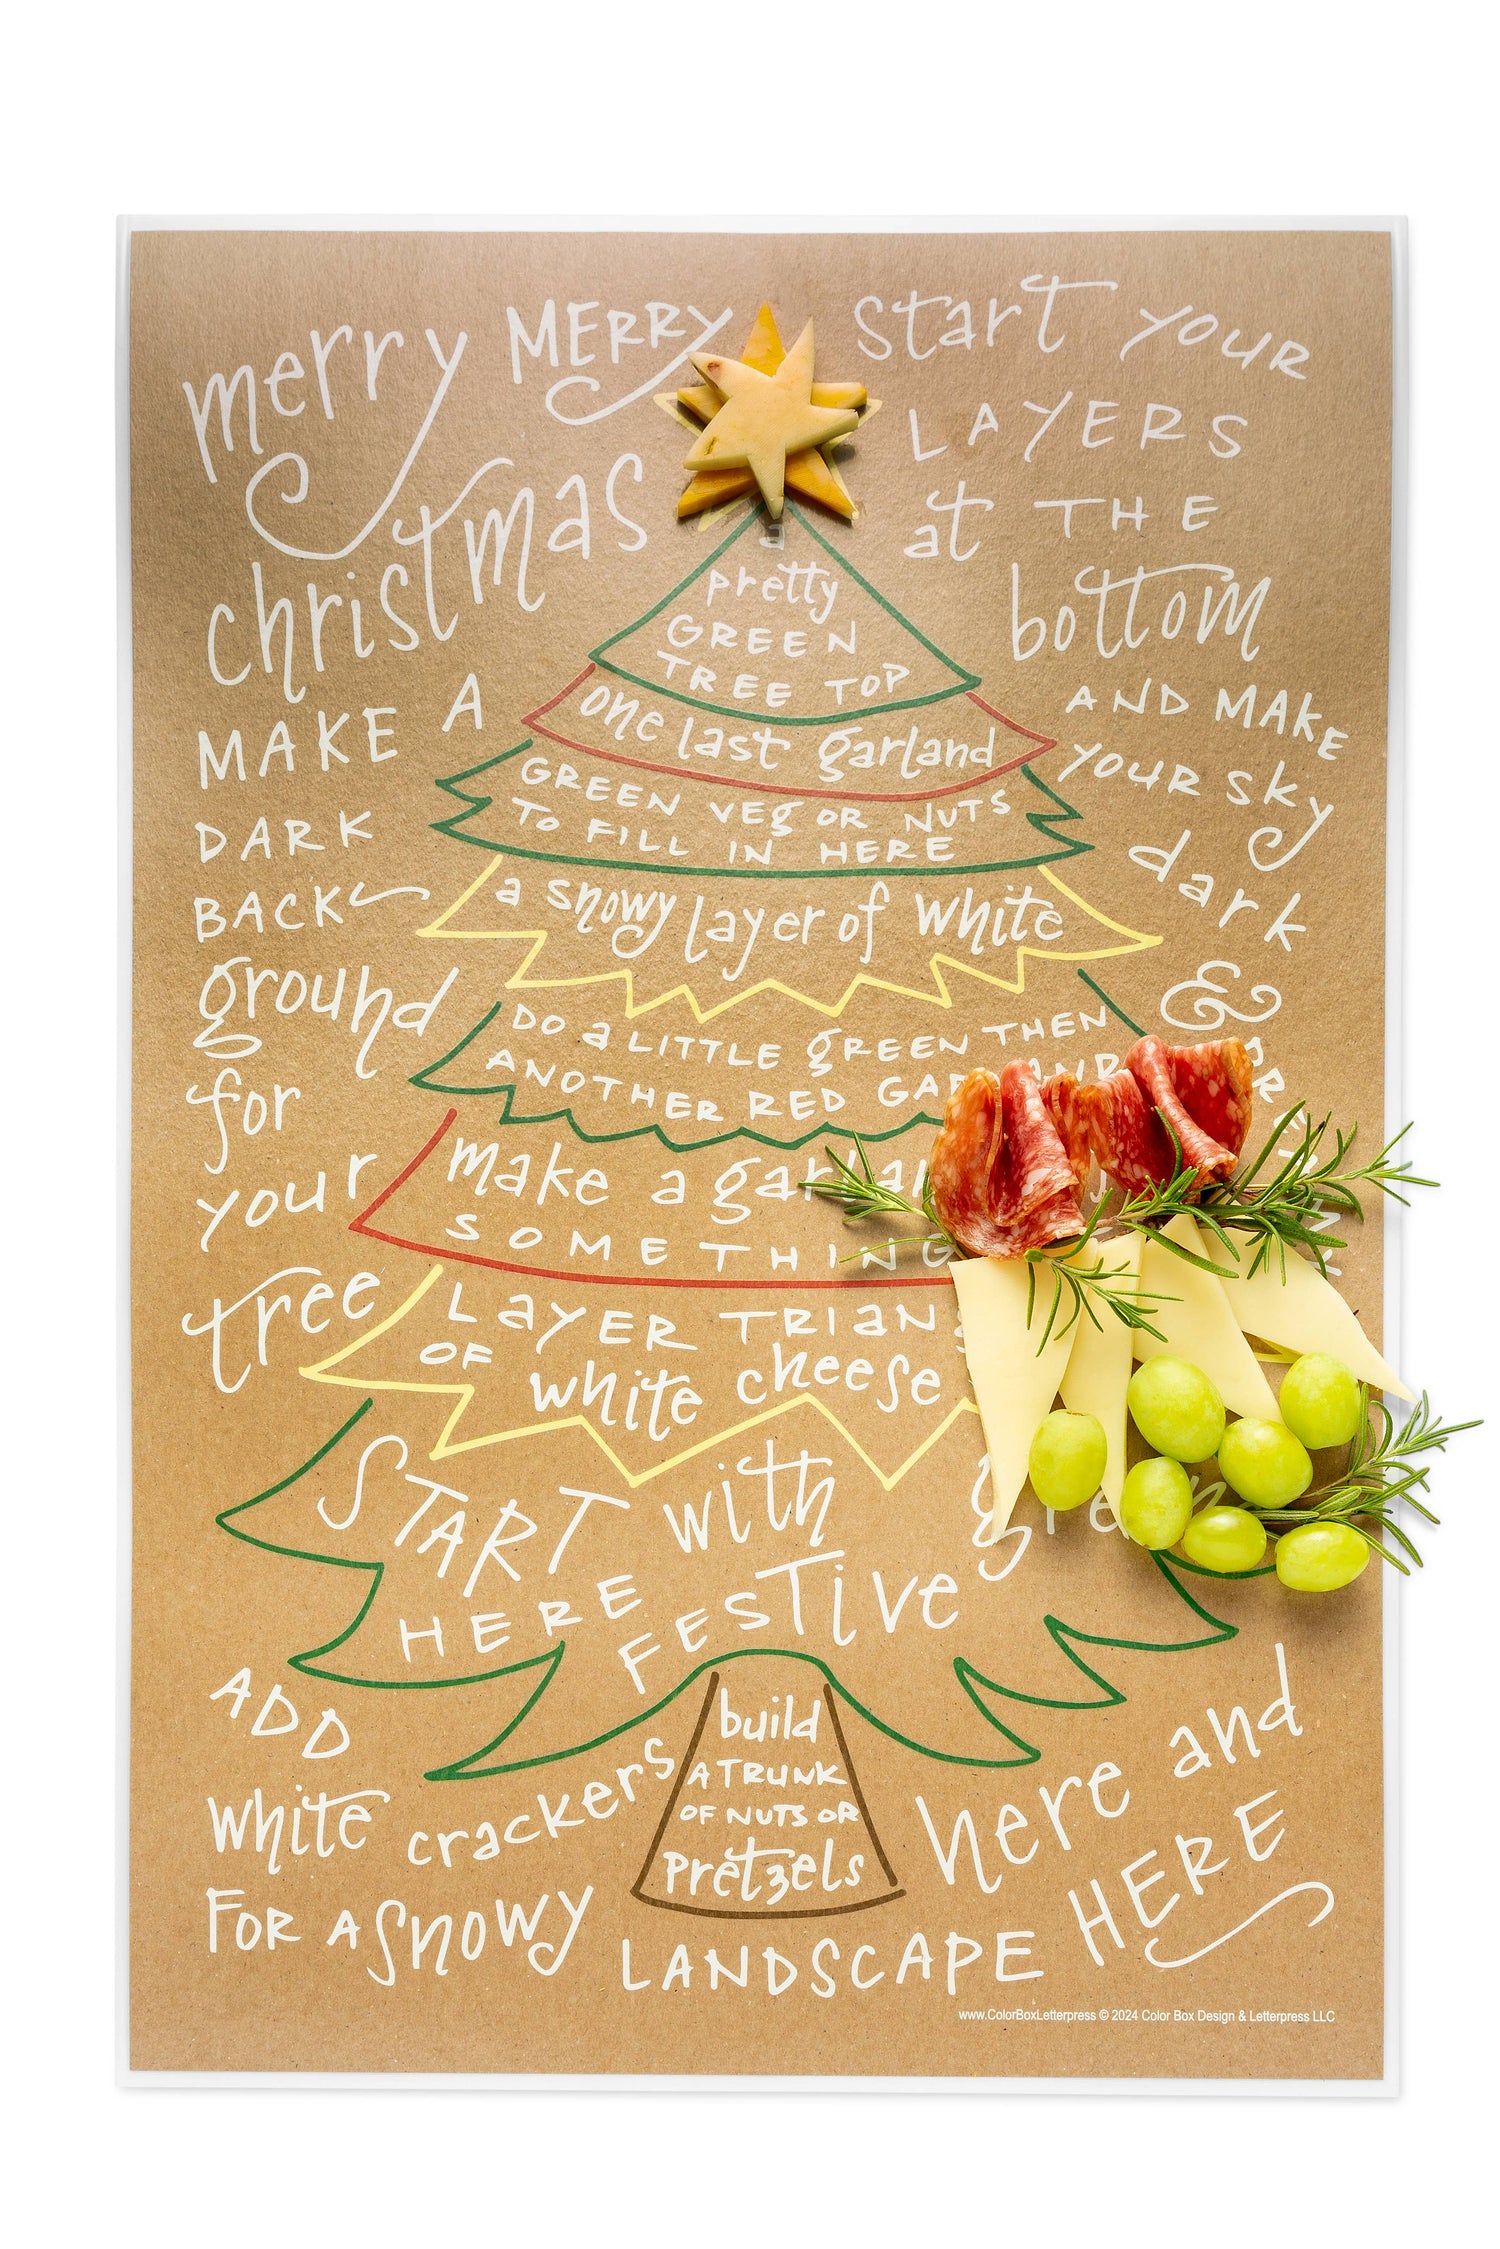 merry MERRY
christmas
MAKE A
DARK
BACK
ground
for
your
tree
start your
LAYERS
at THE
bottom
AND MAKE
your sky
dark
&
a
pretty
GREEN
TREE TOP
one last garland
GREEN VEG OR NUTS
TO FILL IN HERE
a snowy layer of white
DO a LITTLE GREEN THEN
ANOTHER RED
make a
SOMETHING
LAYER
OF white cheese
START with
HERE FESTIVE
build
A TRUNK
OF NUTS OR
pretzels
ADD
white crackers
FOR A snowy LANDSCAPE
here and
HERE
www.ColorBoxLetterpress © 2024 Color Box Design & Letterpress LLC